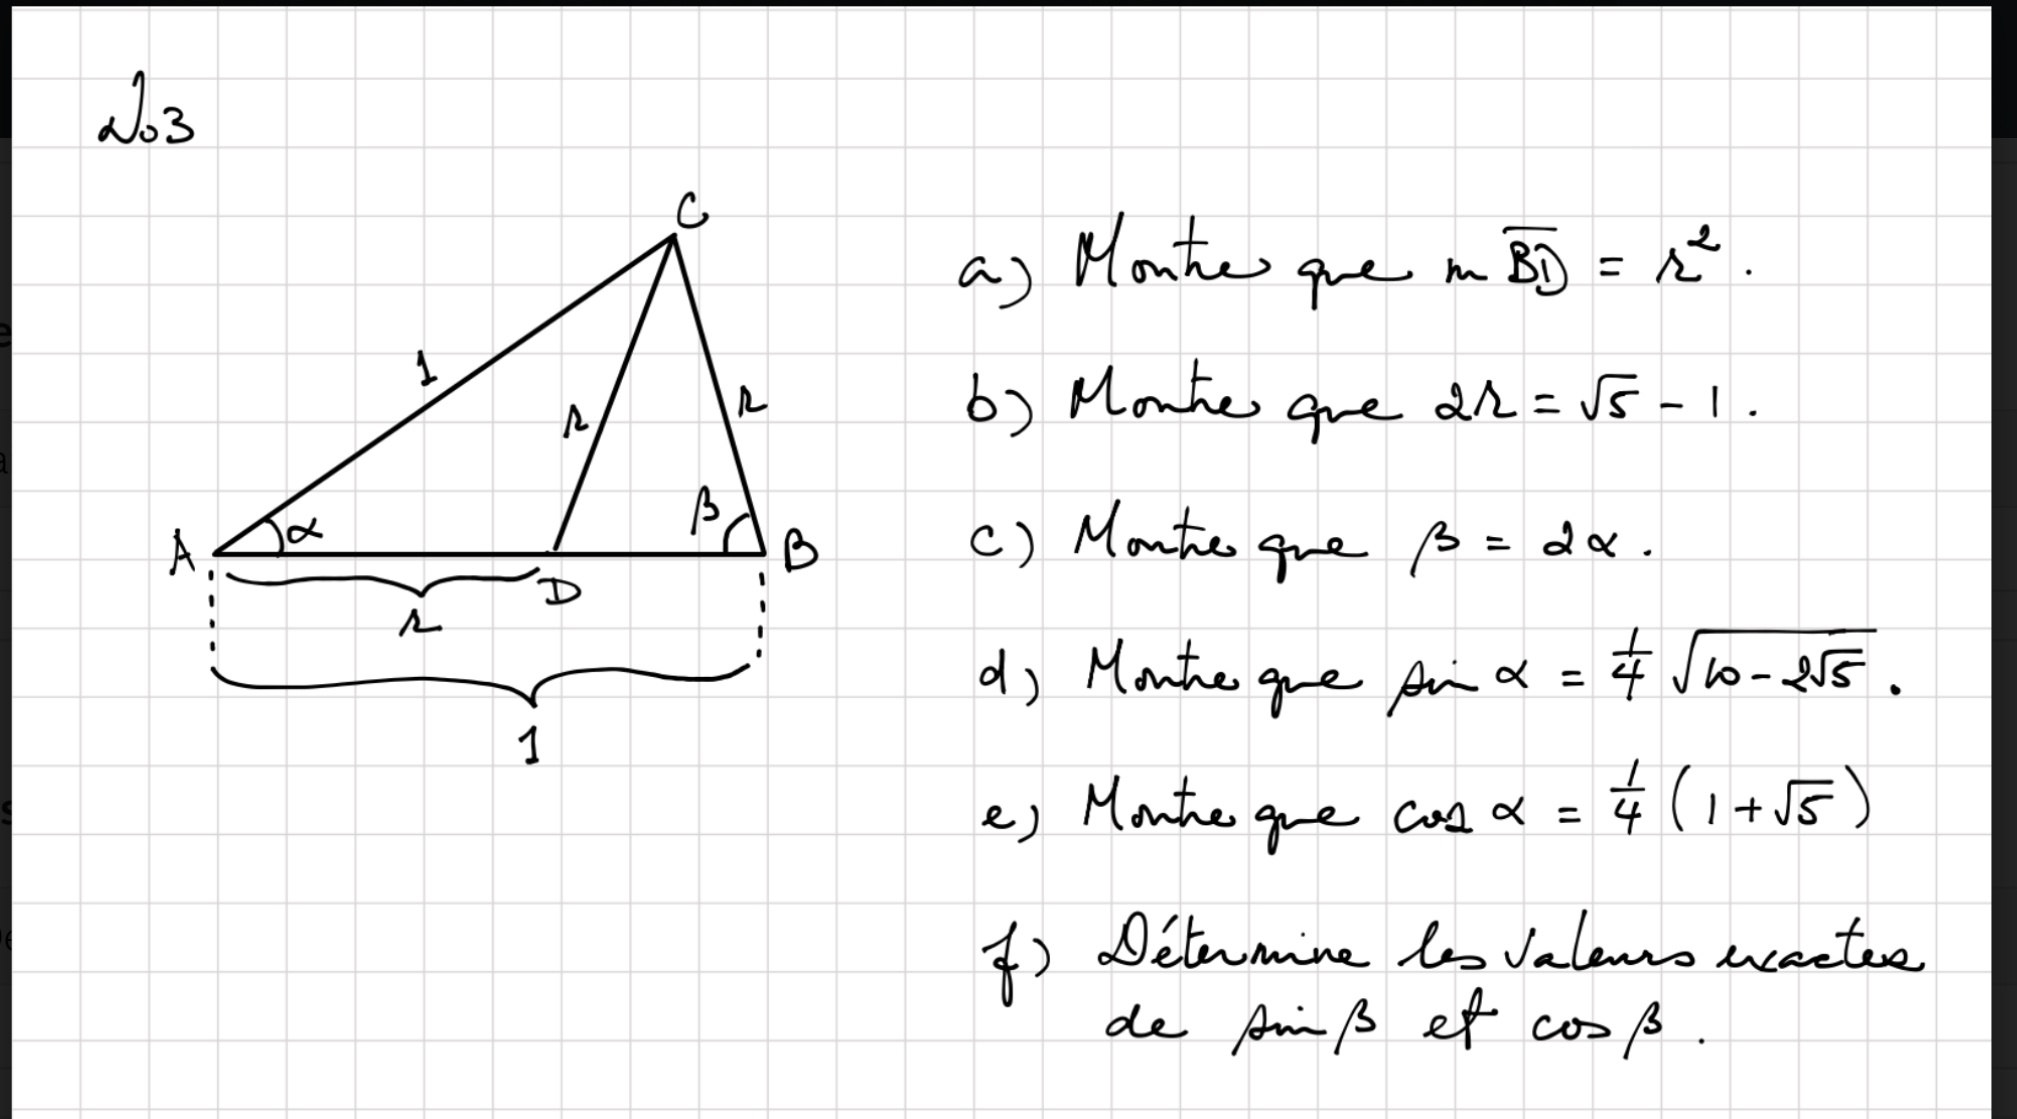 No3
C
a) Montre que m BD̅ = r².
1
r
r
b) Montre que 2r = √5 - 1.
A
α
β
B
c) Montre que β = 2α.
r
D
d) Montre que sin α = 1/4 √(10-2√5).
1
e) Montre que cos α = 1/4 (1+√5)
f) Détermine les valeurs exactes
de sin β et cos β.